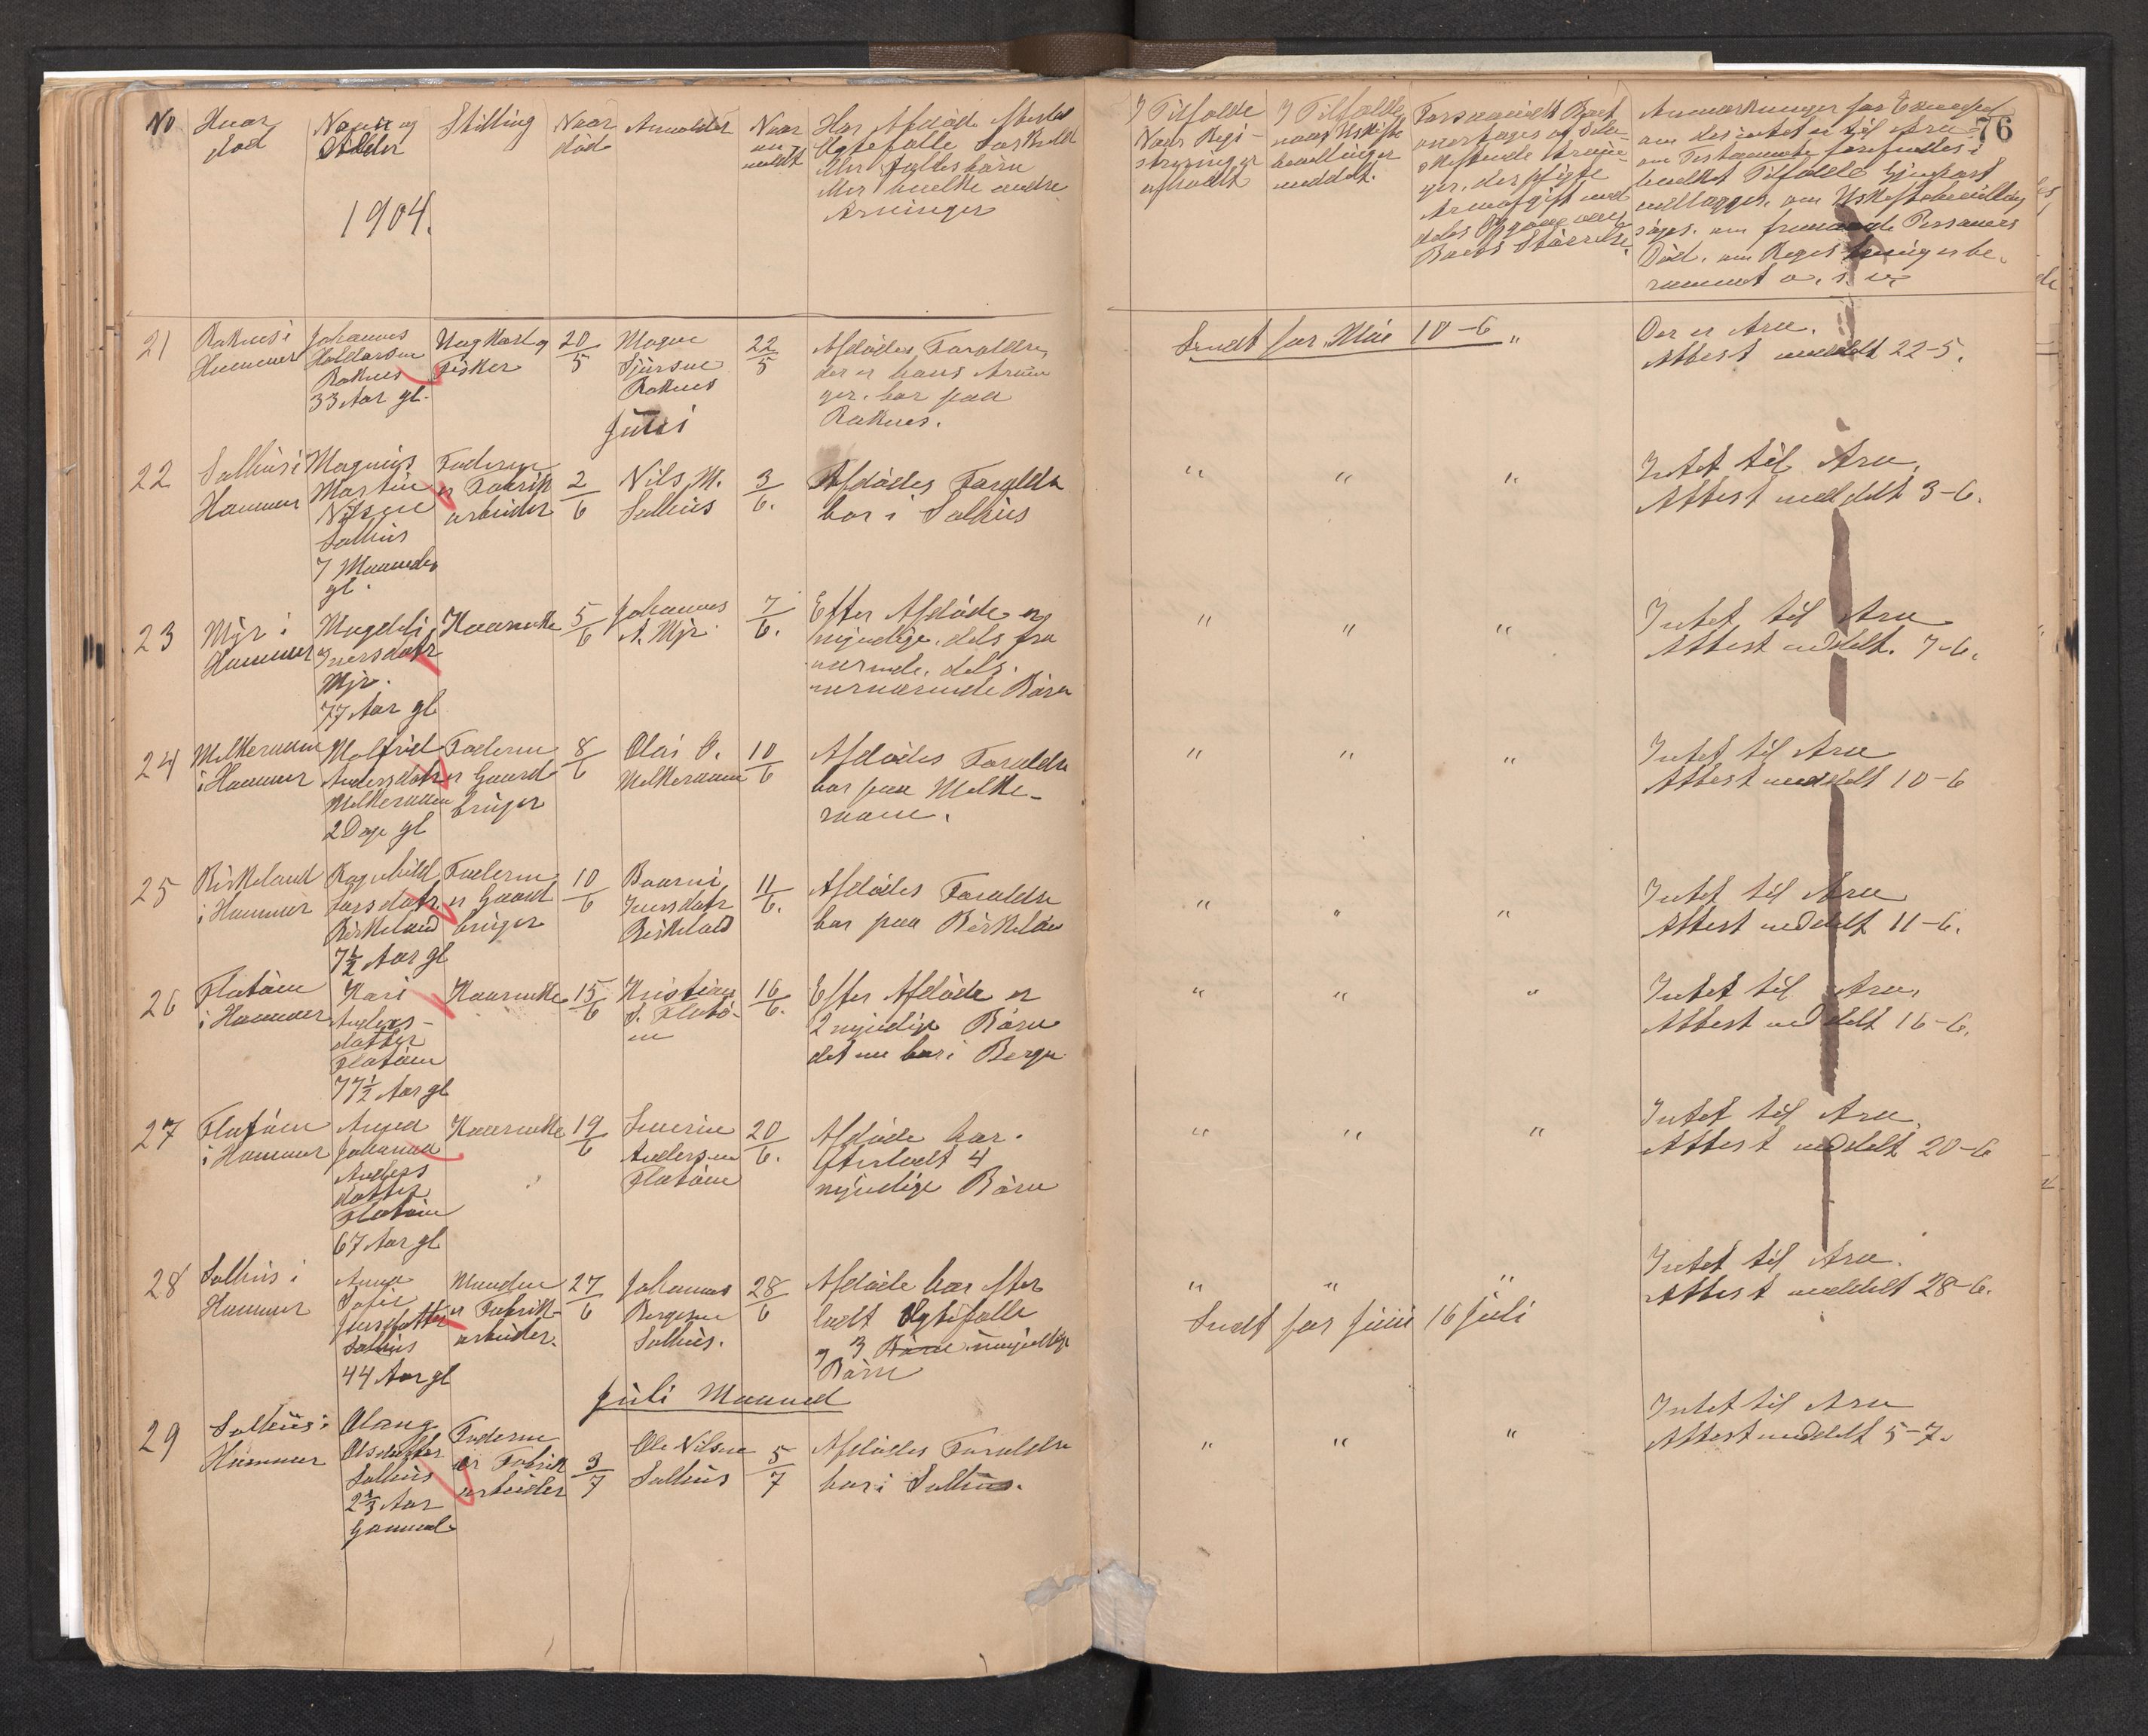 No
Hvor
død
Navn og
Alder
Stilling
Naar
død
Anmelder
Naar
an
meldt
Har Afdøde efterladt
Ægtefælle, Særkuld
eller Fællesbørn
eller hvilke andre
Arvinger
I Tilfælde
Naar Regi-
strering er
afholdt
I Tilfælde
naar Uskifte
bevillinger
meddelt.
Forsaavidt Boet
overtages af Selv-
skiftende Arvin-
ger, der pligte
Arveafgift ved
dets Opgave over
Boets Størrelse.
Anmærkninger for Exempel
om der intet er til Arv
om Testamente forefindes i
hvilket Tilfælde Gjenpart
vedlægges, om Uskiftebevilling
søges, om fremmede Personers
Død, om Registrering er be-
rammet o. s. v.
76
1904.
21
Raknes i
Hammer
Johannes
Haldorsen
Raknes
33 Aar gl.
Ungkarl og
Fisker
20/5
Mogne
Sjursen
Raknes
22/5
Afdødes Forældre,
der er hans Arvin
ger, bor paa
Raknes.
Sendt for Mai 10-6 "
Der er Arv.
Attest meddelt 22-5.
Juni
22
Salhus i
Hammer
Magnus
Martin
Nilsen
Salhus
7 Maaneder
gl.
Faderen
er Fabrik
arbeider
2/6
Nils M.
Salhus
3/6.
Afdødes Forældre
bor i Salhus
" " "
Intet til Arv.
Attest meddelt 3-6.
23
Myr i
Hammer
Magdeli
Iversdatr
Myr.
77 Aar gl
Kaarenke
5/6
Johannes
A. Myr.
7/6.
Efter Afdøde er
myndige, dels fra
værende, dels
nærværende Børn
" " "
Intet til Arv
Attest meddelt. 7-6.
24
Melkeraaen
i Hammer
Malfrid
Andersdatr
Melkeraaen
2 Dage gl
Faderen
er Gaard
bruger
8/6
Olai O.
Melkeraaen
10/6
Afdødes Forældre
bor paa Melke-
raaen.
" " "
Intet til Arv
Attest meddelt 10-6
25
Birkeland
i Hammer
Ragnhild
Larsdatr
Birkeland
7½ Aar gl
Faderen
er Gaard
bruger
10/6
Baarni
Iversdatr
Birkelad
11/6.
Afdødes Forældre
bor paa Birkelan
" " "
Intet til Arv
Attest meddelt 11-6.
26
Flatøen
i Hammer
Kari
Anders-
datter
Flatøen
77½ Aar gl
Kaarenke
15/6
Kristian
S. Flatø-
en
16/6.
Efter Afdøde er
2 myndige Børn
det ene bor i Bergen
" " "
Intet til Arv,
Attest meddelt 16-6.
27
Flatøen
i Hammer
Anna
Johanna
Anders
datter
Flatøen
67 Aar gl
Kaarenke
19/6
Severin
Andersen
Flatøen
20/6.
Afdøde har
Efterladt 4
myndige Børn
" " "
Intet til Arv,
Attest meddelt 20-6
28
Salhus i
Hammer
Anna
Sofie
Salhus
44 Aar gl
Manden
er Fabrik-
arbeider.
27/6
Johannes
Bergesen
Salhus.
28/6
Afdøde har efter
ladt Ægtefælle
og 3 Børn umyndige
Børn
" " "
Sendt for Juni 16 Juli
Intet til Arv.
Attest meddelt 28-6.
Juli Maaned
29
Salhus i
Hammer
Olaug
Olsdatter
Salhus
2⅓ Aar
Gammel.
Faderen
er Fabrik
arbeider
3/7
Ole Nilsen
Salhus
5/7
Afdødes Forældre
bor i Salhus.
" " "
Intet til Arv
Attest meddelt 5-7.